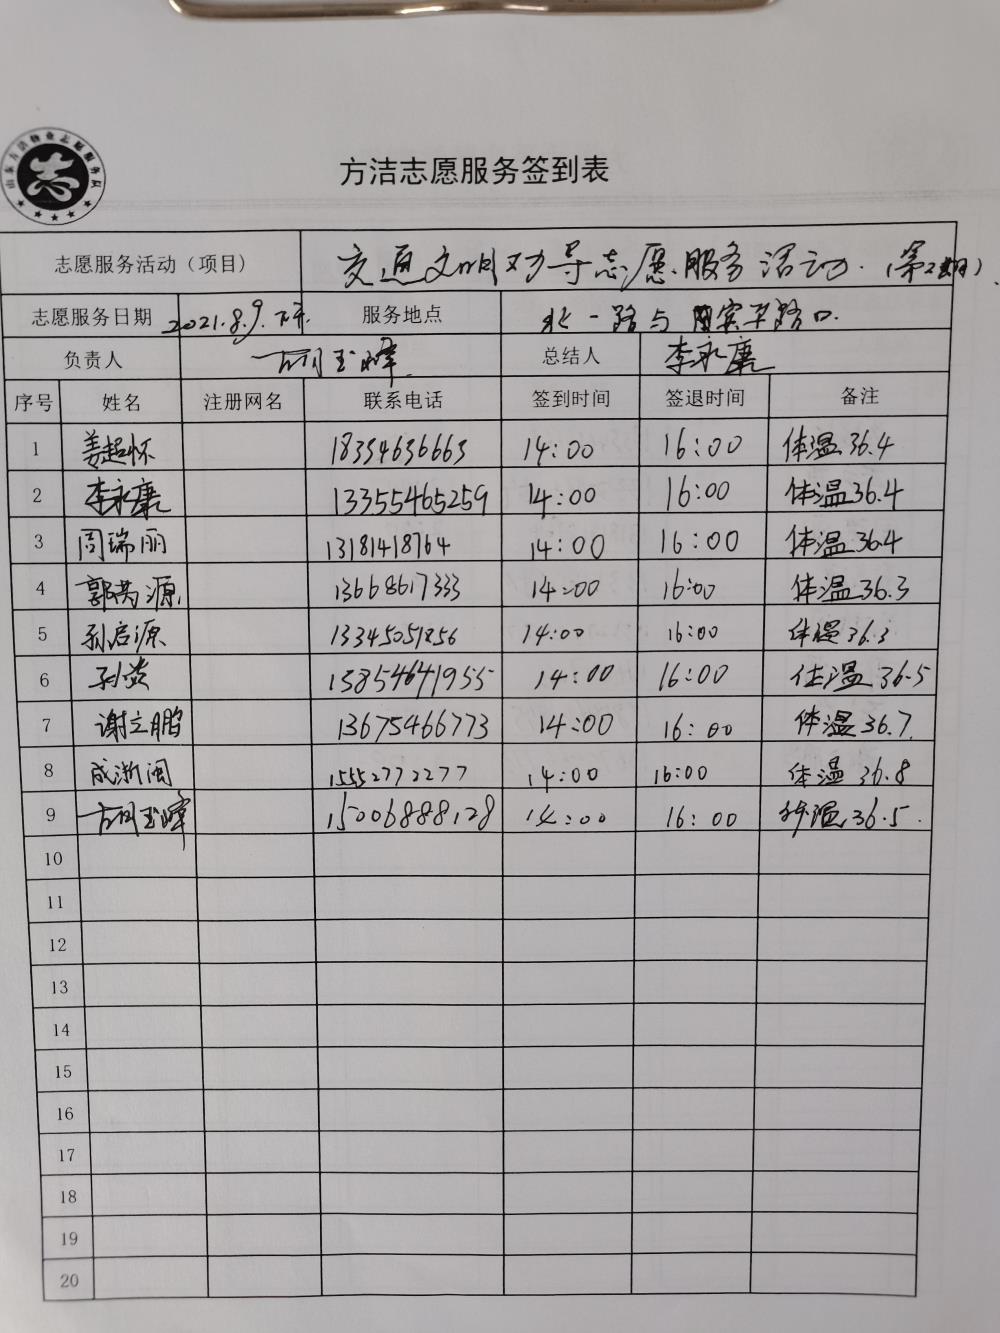 山东方洁物业志愿服务队
志
方洁志愿服务签到表
志愿服务活动（项目） 交通文明劝导志愿服务活动.（第2期）
志愿服务日期 2021.8.9.下午 服务地点 北一路与 路口.
负责人 胡玉峰 总结人 李永康
序号 姓名 注册网名 联系电话 签到时间 签退时间 备注
1 姜超怀 18354636663 14:00 16:00 体温36.4
2 李永康 13355465259 14:00 16:00 体温36.4
3 周瑞丽 13181418764 14:00 16:00 体温36.4
4 郭洪源 13668617333 14:00 16:00 体温36.3
5 孙启源 13345051856 14:00 16:00 体温36.3
6 孙炎 15854641955 14:00 16:00 体温36.5
7 谢立鹏 13675466773 14:00 16:00 体温36.7
8 成浙闽 15552772277 14:00 16:00 体温36.8
9 胡玉峰 15006888128 14:00 16:00 体温36.5.
10
11
12
13
14
15
16
17
18
19
20